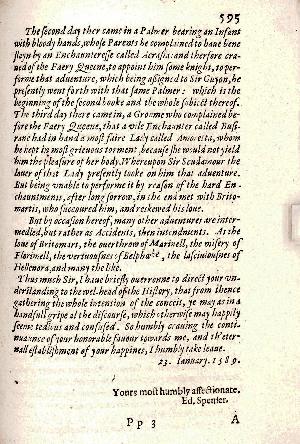 595
The second day ther came in a Palmer bearing an Infant
with bloody hands, whose Parents he complained to haue bene
slayn by an Enchaunteresse called Acrasia: and therfore cra-
ued of the Faery Queene, to appoint him some knight, to per-
forme that aduenture, which being assigned to Sir Guyon, he
presently went forth with that same Palmer: which is the
beginning of the second booke and the whole subiect thereof.
The third day there came in, a Groome who complained be-
fore the Faery Queene, that a vile Enchaunter called Busi-
rane had in hand a most faire Lady called Amoretta, whom
he kept in most grieuous torment, because she would not yield
him the pleasure of her body. Whereupon Sir Scudamour the
louer of that Lady presently tooke on him that aduenture.
But being vnable to performe it by reason of the hard En-
chauntments, after long sorrow, in the end met with Brito-
martis, who succoured him, and reskewed his loue.
But by occasion hereof, many other aduentures are inter-
medled, but rather as Accidents, then intendments. As the
loue of Britomart, the ouerthrow of Marinell, the misery of
Florimell, the vertuousnes of Belphœbe, the lasciuiousnes of
Hellenora, and many the like.
Thus much Sir, I haue briefly ouerronne to direct your vn-
derstanding to the wel-head of the History, that from thence
gathering the whole intention of the conceit, ye may as in a
handfull gripe al the discourse, which otherwise may happily
seeme tedious and confused. So humbly crauing the conti-
nuaunce of your honorable fauour towards me, and th'eter-
nall establishment of your happines, I humbly take leaue.
23. Ianuary. 1589.
Yours most humbly affectionate.
Ed. Spenser.
Pp 3
A